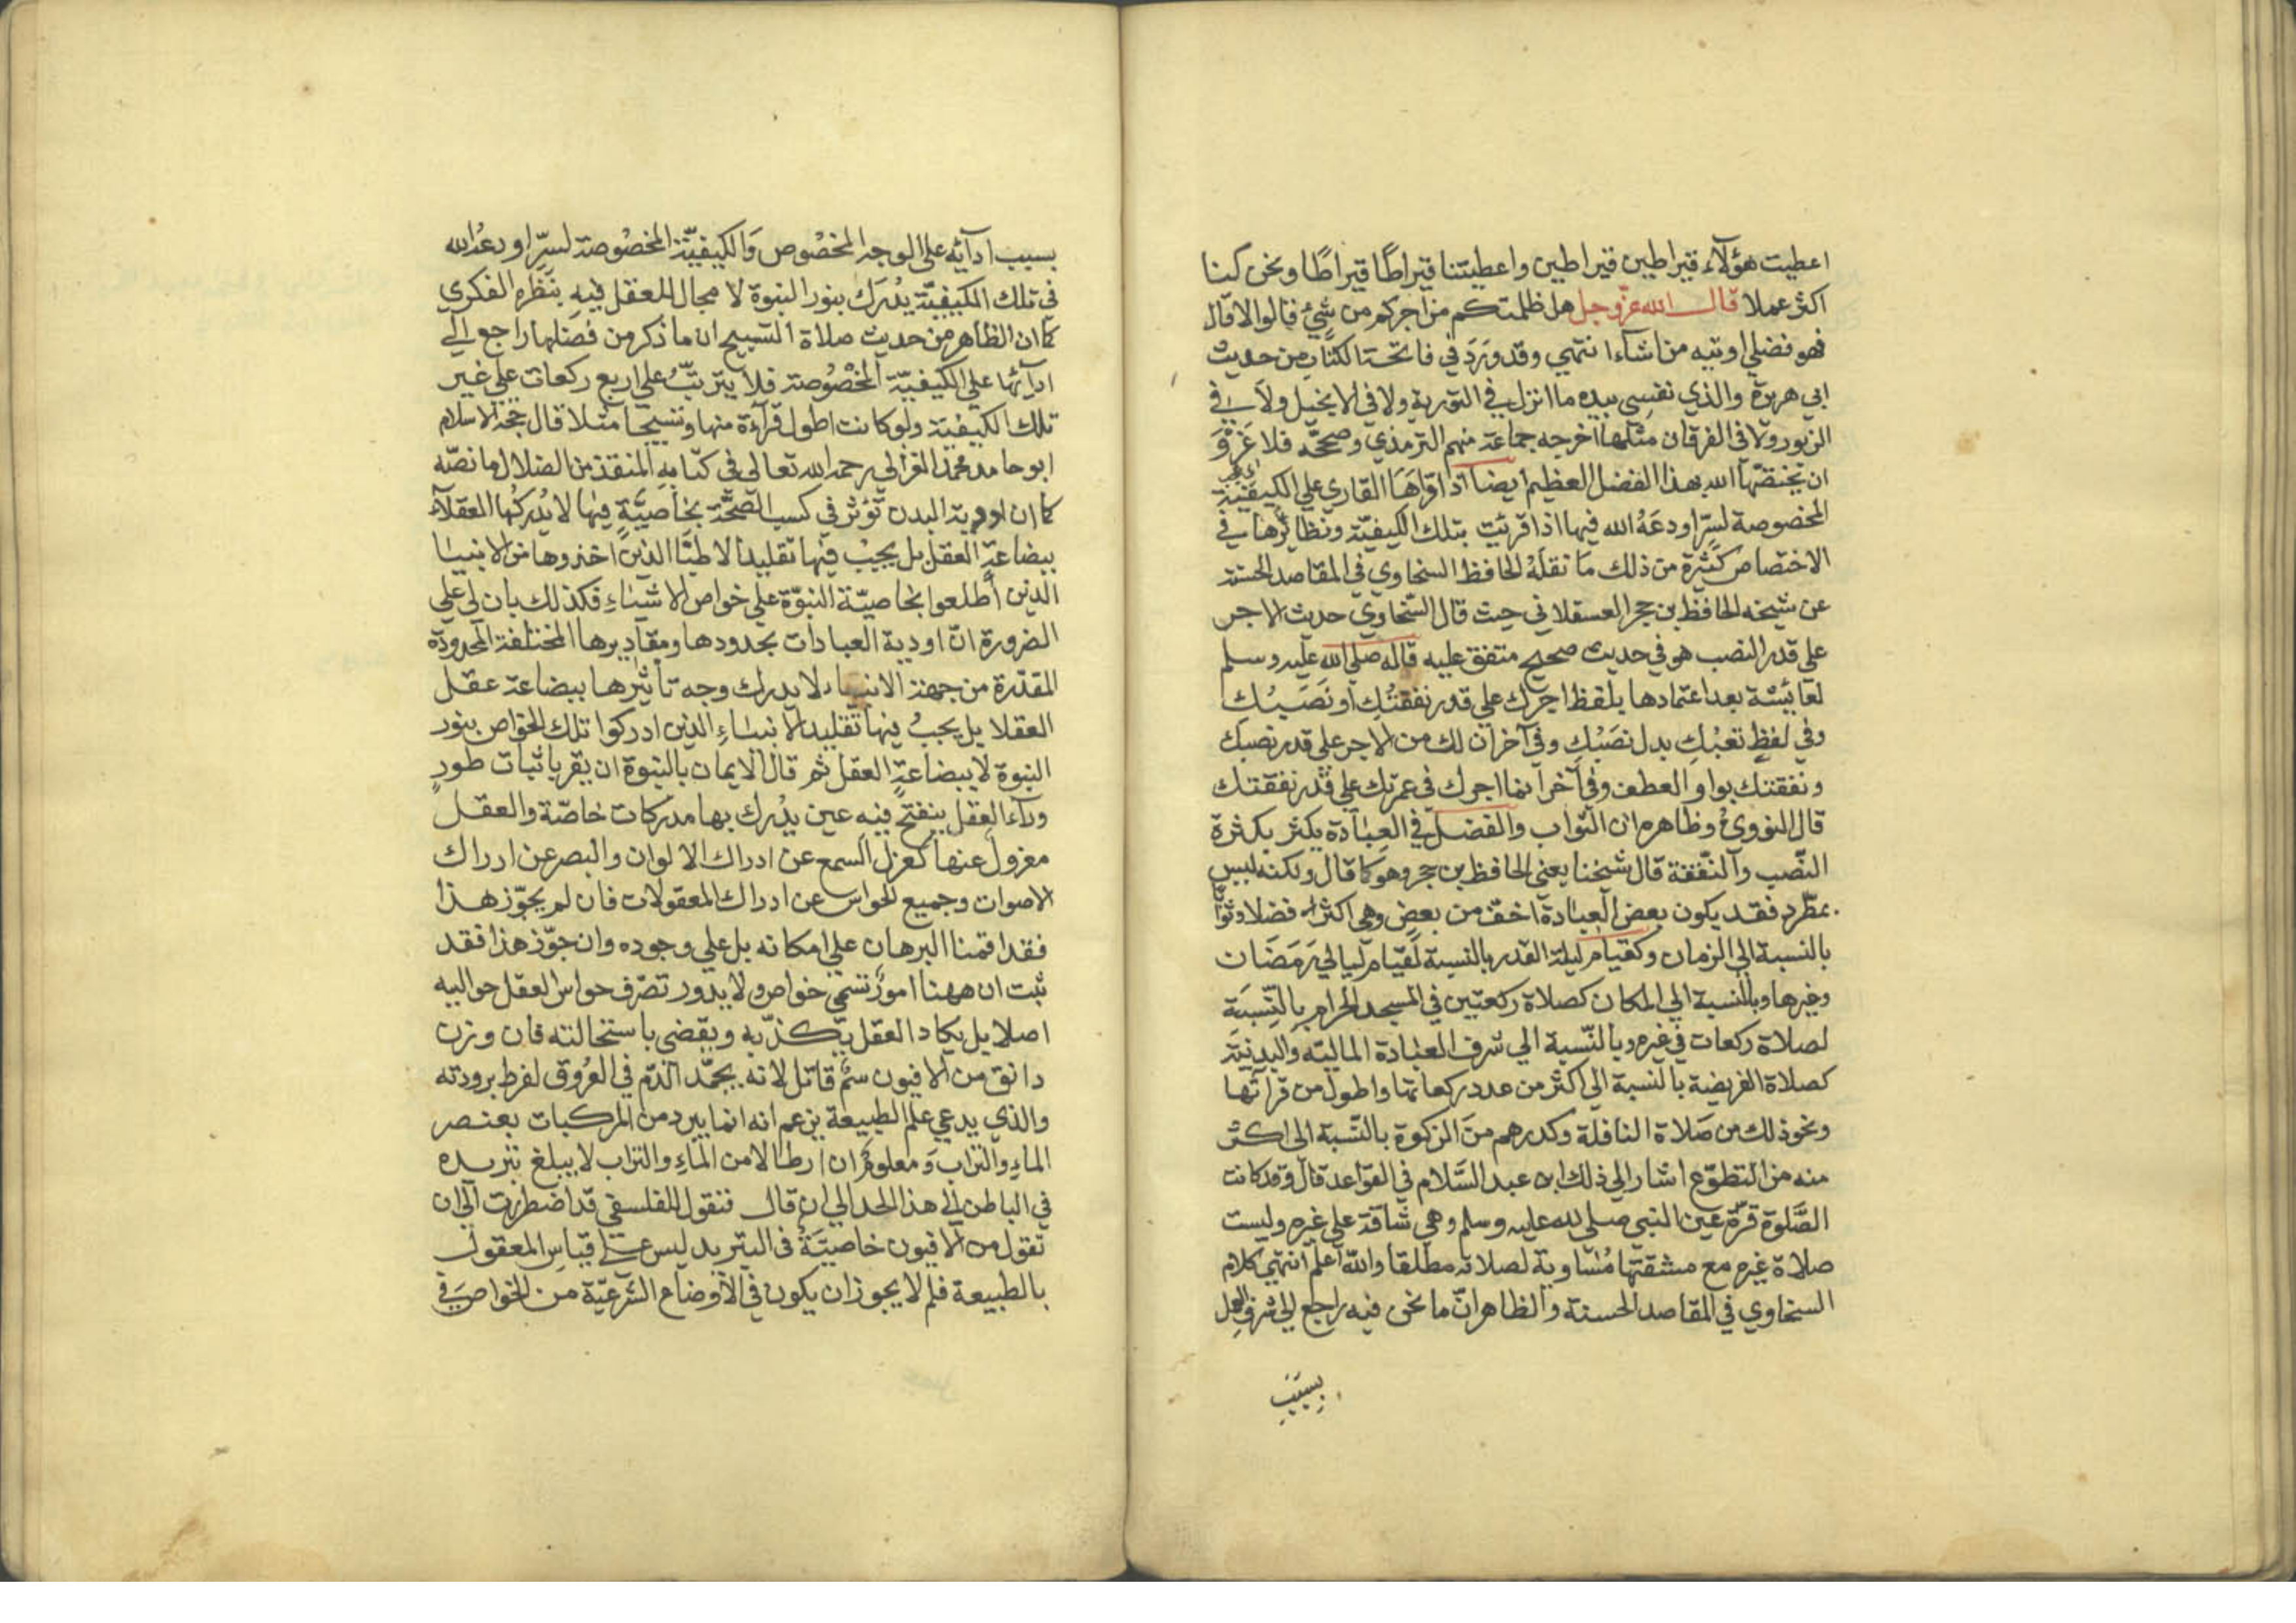 اعطيت هؤلآء قيراطين قيراطين واعطيتنا قيراطًا قيراطًا ونحن كنا
اكثر عملا قال الله عزّ وجل هل ظلمتكم من اجركم من شئٍ قالوا لا قال
فهو فضلي اوتيه من اشآء انتهي وقد وَرَدَ في فاتحة الكتاب من حديث
ابي هريرة والذي نفسي بيده ما انزل في التورية ولا في الانجيل ولا في
الزبور ولا في الفرقان مثلها اخرجه جماعة منهم الترمذي وصححّه فلا غَرْوَ
ان يختصّها الله بهذا الفضل العظيم ايضا اذا قرَاهَا القاري علي الكيفيّة
المخصوصة لسِرٍّ اودعَهُ الله فيها اذا قرئت بتلك الكيفيّة ونظائرها في
الاختصاص كثيرة من ذلك ما نقلَهُ الحافظ السخاوي في المقاصد الحسنة
عن شيخه الحافظ بن حجر العسقلاني حيث قال السّخاوي حديث الاجر
علي قدر النصب هو في حديث صحيح متفق عليه قاله صلي الله عليه وسلم
لعائشة بعد اعتمادها بلفظ اجرك علي قدر نفقتُكِ او نَصَبُك
وفي لفظٍ تعبْكِ بدل نصَبْكِ وفي آخر ان لك من الاجر علي قدر نصبك
ونفقتك بواو العطف وفي آخر انما اجرك في عمرتك علي قدر نفقتك
قال النووي وظاهره ان الثواب والفضل في العبادة يكثر بكثرة
النّصب والنّفقة قال شيخنا يعني الحافظ بن حجر وهو كما قال ولكنه ليس
بمطّرد فقد يكون بعض العبادة اخفّ من بعضٍ وهي اكثر فضلا وثوابًا
بالنسبة الي الزمان وكقيام ليلة القدر بالنسبة لقيام ليالي رَمَضَان
وغيرها وبالنسبة الي المكان كصلاة ركعتين في المسجد الحرام بالنّسبَة
لصلاة ركعات في غيره وبالنّسبة الي شرف العبادة الماليّه والبدنيّة
كصلاة الفريضة بالنسبة الي اكثر من عدد ركعاتها واطول من قرائتها
ونحو ذلك من صَلاة النافلة وكدرهم منَ الزكوة بالنّسبة الي اكثر
منه من التطوّع اشار الي ذلك ابن عبد السَّلام في القواعد قال وقد كانت
الصَّلوة قرّة عين النبي صلي الله عليه وسلم وهي شاقّة علي غيره وليست
صلاة غيره مع مشقتها مُساوية لصلاته مطلقا والله اعلم انتهي كلام
السخاوي في المقاصد الحسنة والظاهر انّ ما نحن فيه راجع الي شرف العمل
بسبب
بسبب ادآئه علي الوجه المخصُوص وَالكيفيّة المخصُوصة لسِرٍّ اودعهُ الله
في تلك الكيفيّة يُدْرَك بنور النبوة لا مجال للعقل فيهِ بنَظَره الفكري
كما ان الظاهر من حديث صلاة التسبيح ان ما ذكر من فضلها راجع الي
ادآئها علي الكيفيّة المخصُوصة فلا يترتّبُ علي اربع ركعات علي غير
تلك الكيفيّة ولو كانت اطول قرآءة منها وتسبيحا مثلا قال حجّة الاسلام
ابو حامد محمد الغزالي رحمه الله تعالي في كتابه المنقذ من الضلال ما نصّه
كما ان ادوية البدن تؤثر في كسب الصّحّة بخاصِيّةٍ فيها لا يُدركها العقلآء
ببضاعةِ العقل بل يجبُ فيها تقليد الاطبّا الذين اخذوها من الانبيا
الذين اطلعوا بخاصيّة النبوّة علي خواص الاشياءِ فكذلك بان لي علي
الضرورة انّ ادوية العبادات بحدودها ومقاديرها المختلفة المحدودة
المقدّرة من جهة الانبياء لا يدرك وجه تأثيرها ببضاعة عقل
العقلا بل يجبُ فيها تقليد الانبياءِ الذين ادركوا تلك الخواص بنور
النبوة لا ببضاعةِ العقل ثم قال الايمان بالنبوة ان يقر باثبات طورٍ
ورآء العقل ينفتح فيهِ عين يُدْرك بها مدركات خاصّة والعقل
معزول عنها كعزل السمع عن ادراك الالوان والبصر عن ادراك
الاصوات وجميع الحواس عن ادراك المعقولات فان لم يجوّز هذا
فقد اقمنا البرهان علي امكانه بل علي وجوده وان جوّز هذا فقد
ثبت ان ههنا امورٌ تسمّي خواص ولا يدور تصرّف حواس العقل حواليه
اصلا بل يكاد العقل يكذّبه ويقضي باستحالته فان وزن
دانق من الافيون سمٌّ قاتل لانه يجمّد الدّم في العُرُوق لفرط برودته
والذي يدعي علم الطبيعة يزعم انه انما يبرد من المركبات بعنصر
الماءِ والتراب وَمعلومٌ ان ارطالا من الماءِ والتراب لا يبلغ تبريده
في الباطن الي هذا الحد الي ان قال فنقول للفلسفي قد اضطررت الي ان
تقول من الافيون خاصيّةٌ في التبريد ليس علي قياس المعقول
بالطبيعة فلم لا يجوز ان يكون في الأوضاع الشّرعيّة من الخواص في